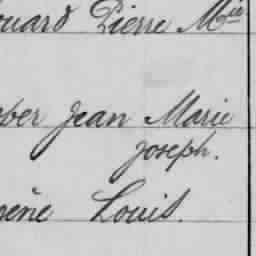 ouard Pierre Mie
ober Jean Marie
Joseph.
gène Louis.